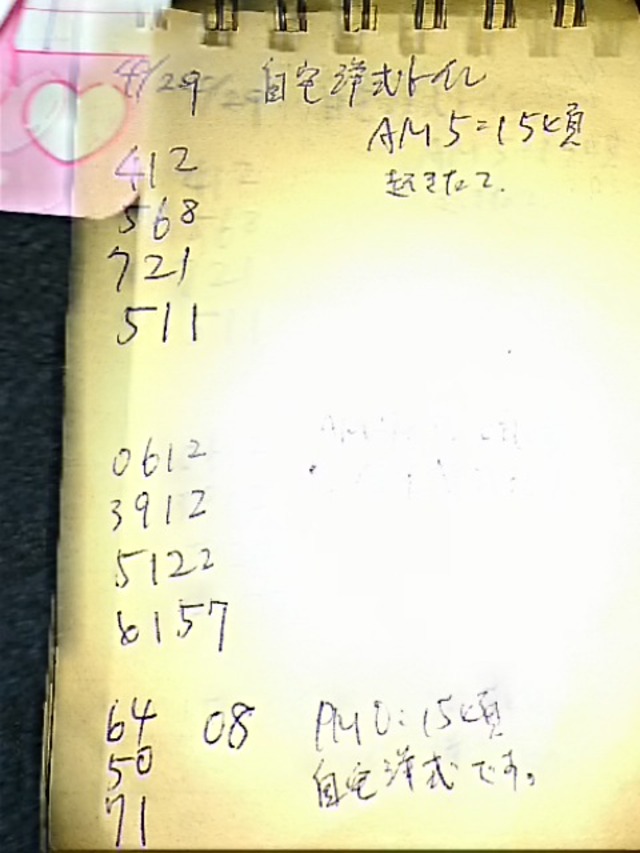 4/29 自宅洋式トイレ
AM5:15頃
起きたて
412
568
721
511
0612
3912
5122
6157
64 08 PM0:15頃
50 自宅洋式です。
71